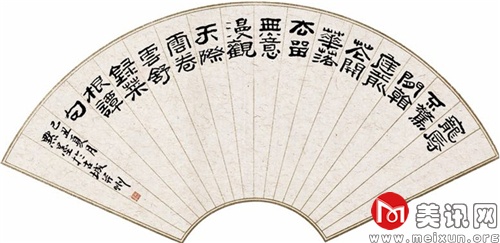 寵辱
不驚
閑看
庭前
花開
華落
去留
無意
漫觀
天際
雲卷
雲舒
錄菜
根譚
句
己丑夏月
於古城徐州
美讯网
www.meixun.org